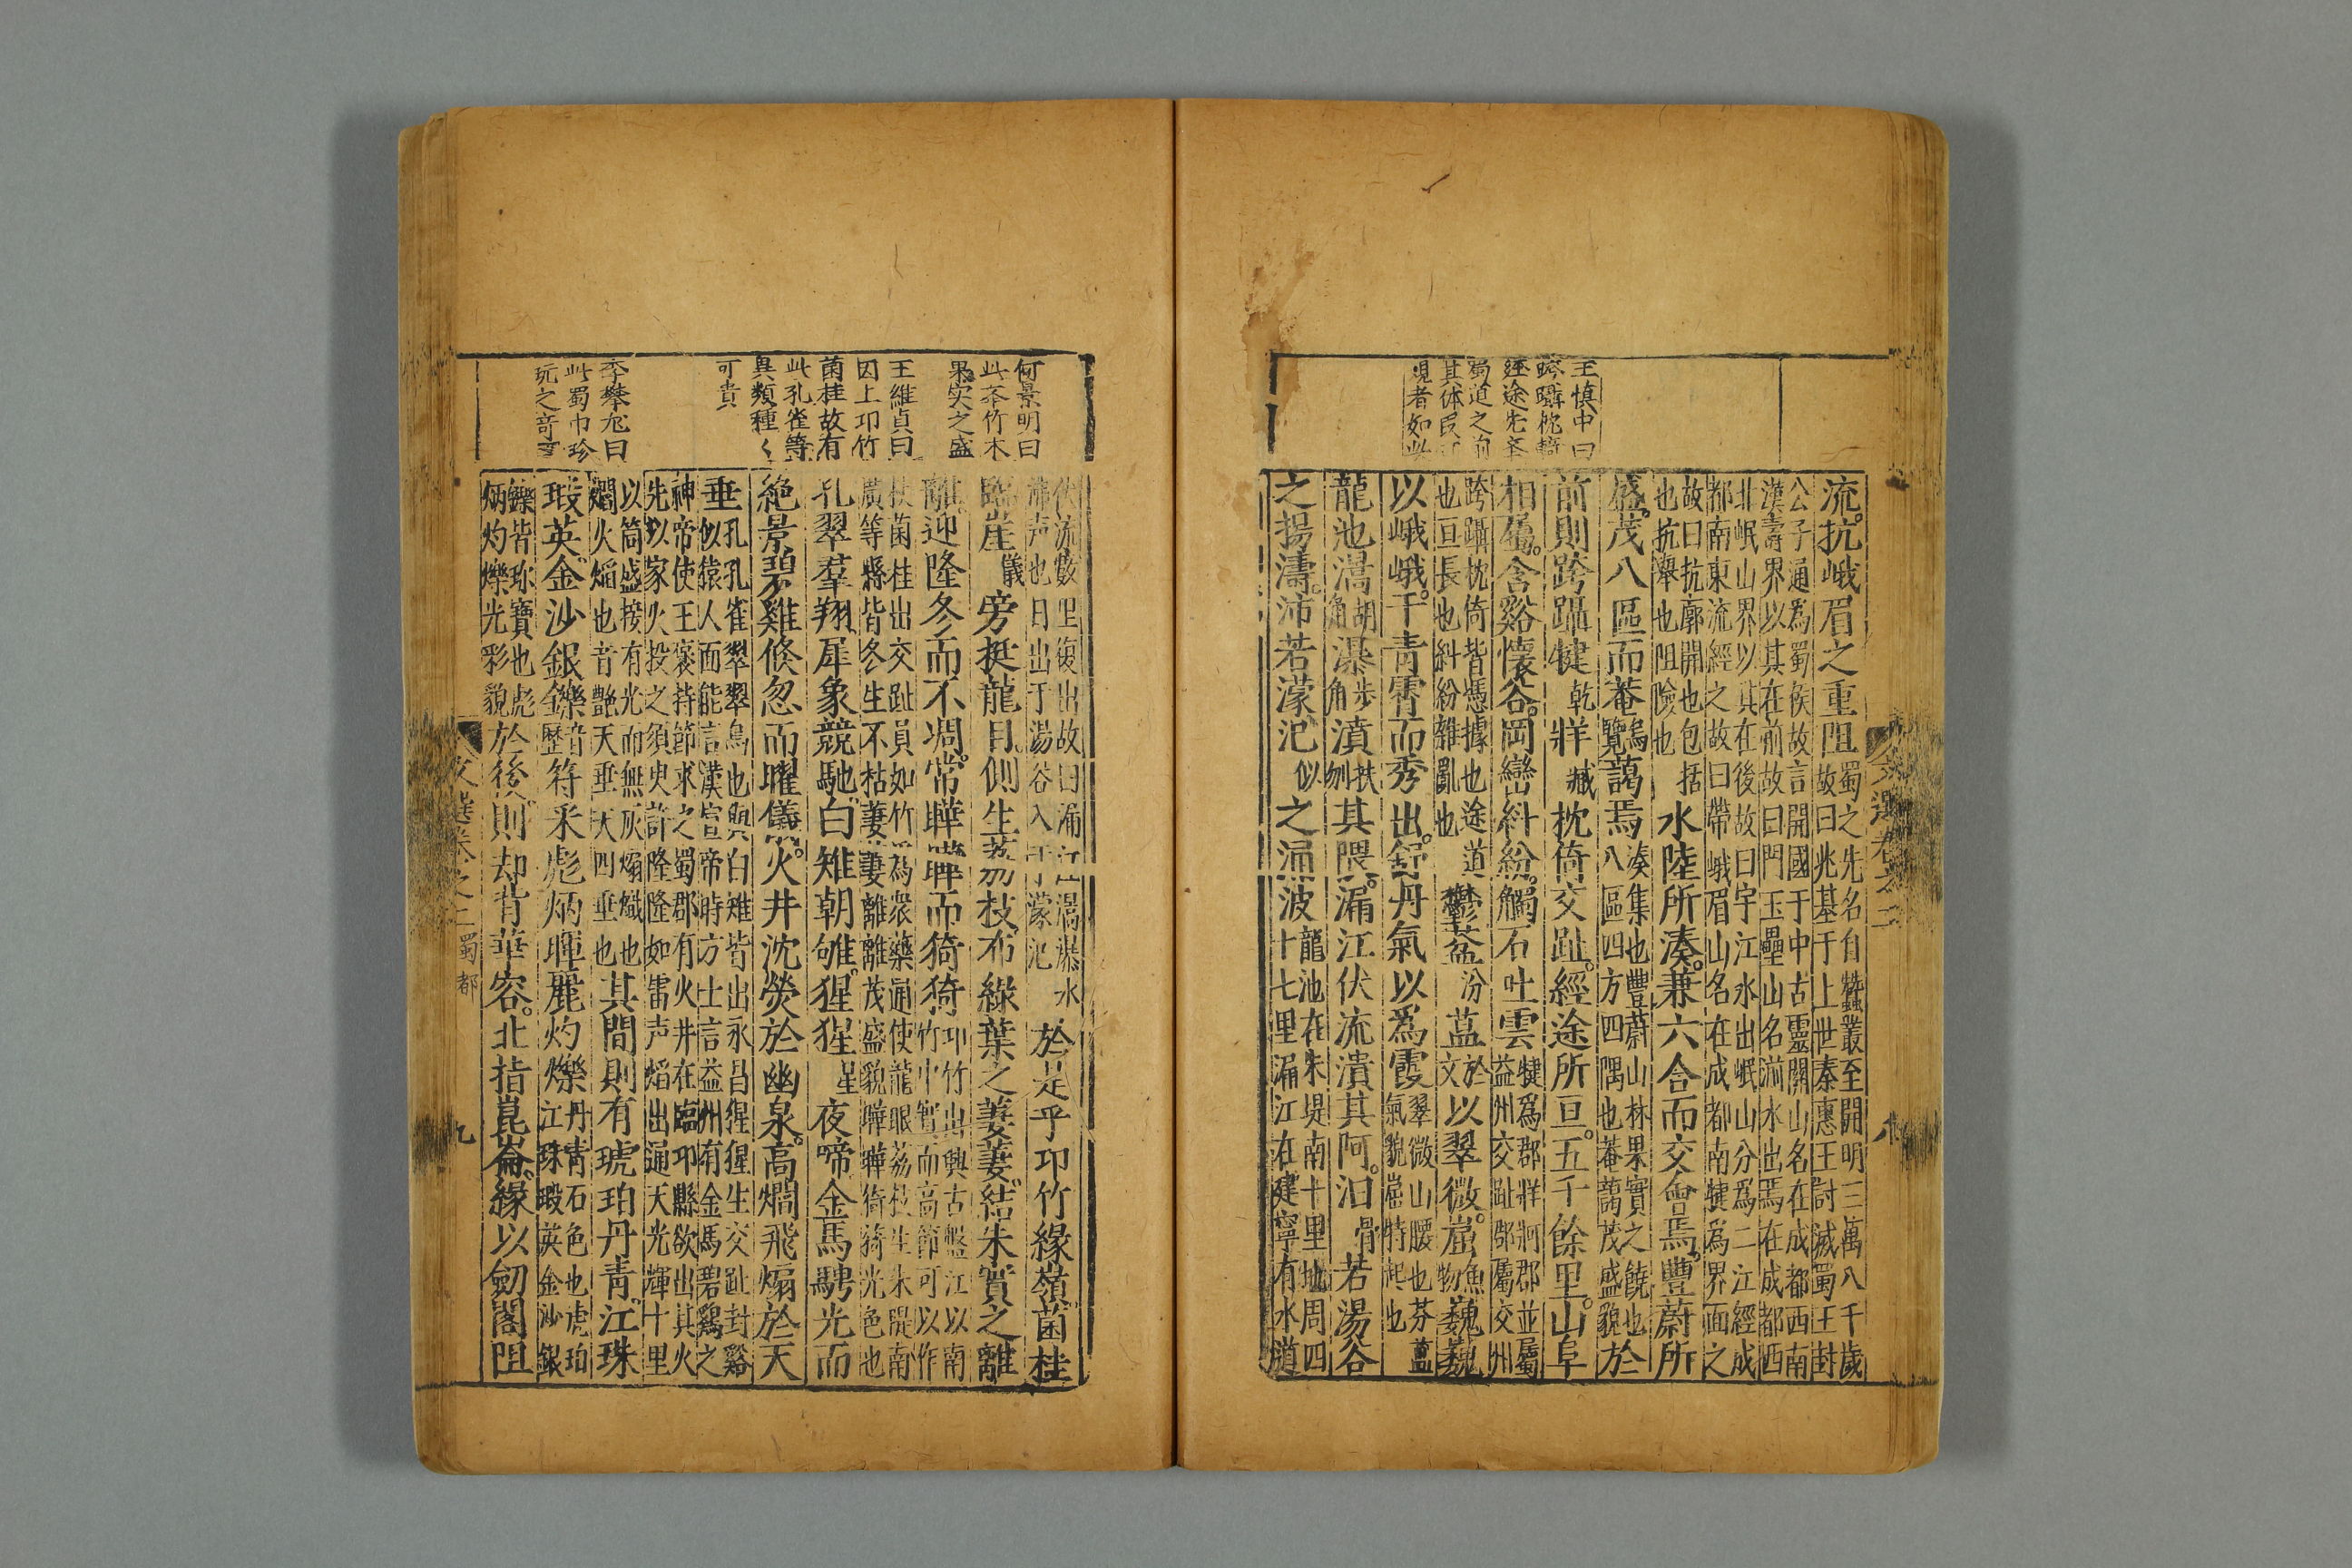 王慎中曰
跨躡枕輢
經途先奎
蜀道之前
流抗峨眉之重阻蜀之先名自蠶叢至開明三萬八千歲故曰兆基于上世秦惠王討滅蜀王封
公子通為蜀侯故言開國于中古靈關山名在成都西南漢壽界以其在前故曰門玉壘山名湔水出焉在成都西
北岷山界以其在後故曰宇江水出岷山分為二江經成都南東流經之故曰帶峨眉山名在成都南犍為界面之
故曰抗廓開也包括也抗舉也阻險也水陸所湊兼六合而交會焉豐蔚所
盛茂八區而菴烏覽藹焉湊集也豐蔚山林果實之饒也八區四方四隅也菴藹茂盛貌也於
前則跨躡犍乾牂臧枕倚交趾經途所亘五千餘里山阜
相屬含谿懷谷岡巒糾紛觸石吐雲犍為郡牂牁郡並屬益州交趾郡屬交州
跨躡枕倚皆憑據也途道也亘長也糾紛雜亂也鬱葐汾蒀於文以翠微崫魚物巍巍
以峨峨干青霄而秀出舒丹氣以為霞翠微山腰也芬蒀氣貌崫特起也
龍池㵧胡角瀑步角濆扶刎其隈漏江伏流潰其阿汩骨若湯谷
之揚濤沛若濛汜似之涌波龍池在朱堤南十里地周四十七里漏江在建寧有水道
文選卷之二
八
何景明曰
此夲竹木
果实之盛
王維貞曰
因上卭竹
菌桂故有
此孔雀等
異類種〻
可貴
李攀龙曰
此蜀巾珍
玩之奇
伏流數里復出故曰漏江㵧瀑水沸声也日出于湯谷入于濛汜於是乎卭竹緣嶺菌桂
臨崖儀旁挺龍目側生荔枝布綠葉之萋萋結朱實之離
離迎隆冬而不凋常曄曄而猗猗卭竹出興古盤江以南竹中實而高節可以作
杖菌桂出交趾員如竹為衆藥通使龍眼荔枝生朱隄南廣等縣皆冬生不枯萋萋離離茂盛貌曄曄猗猗光色也
孔翠羣翔犀象競馳白雉朝雊猩猩星夜啼金馬騁光而
絕景碧雞倏忽而曜儀火井沈熒於幽泉高爓飛煽於天
垂孔孔雀翠翠鳥也興白雉皆出永昌猩猩生交趾封谿似猿人面能言漢宣帝時方士言益州有金馬碧鷄之
神帝使王褒持節求之蜀郡有火井在臨卭縣欲出其火先以家火投之須臾許隆隆如雷声焰出通天光輝十里
以筒盛接有光而無灰煽熾也爓火焰也音艷天垂天四垂也其間則有琥珀丹青江珠
瑕英金沙銀鑠音歷符采彪炳暉麗灼爍丹青石色也虎珀江珠瑕英金沙銀
鑠皆珎寶也彪炳灼爍光彩貌於後則却背華容北指崑崙緣以劒閣阻
文選卷之二 蜀都
九